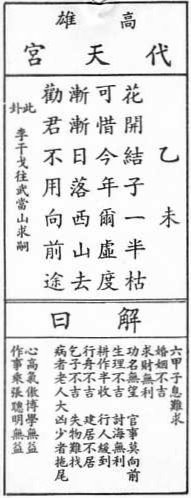 高雄
代天宮
乙未
花開結子一半枯
可惜今年爾虛度
漸漸日落西山去
勸君不用向前途
此卦
李干戈往武當山求嗣
解曰
六甲子息難求
婚姻不吉
求財無利
功名無望 官事莫向前
生理不吉 討海無利
耕作半收 行人緩到
行舟不吉 建居不居
乞子不吉 失物難找
病者老人大凶少者拖尾
心高氣傲博學無益
作事乘張聰明無益